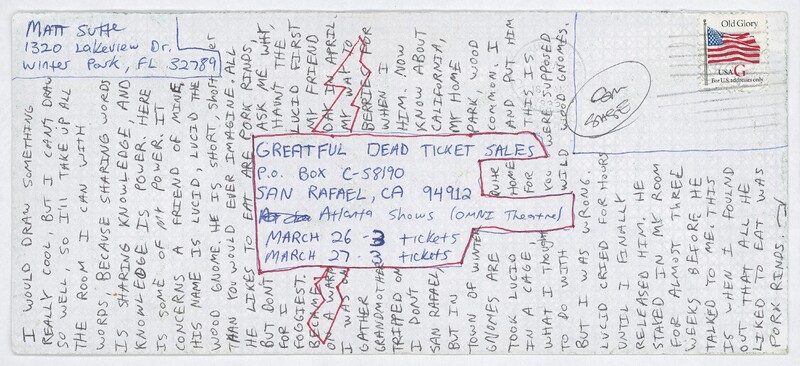 MATT Sutte
1320 Lakeview Dr.
Winter Park, FL 32789
Old Glory
USA G
For U.S. addresses only
GREATFUL DEAD TICKET SALES
P.O. BOX C-S8190
SAN RAFAEL, CA 94912
Atlanta Shows (OMNI Theatre)
MARCH 26 - 3 tickets
MARCH 27 - 3 tickets
I WOULD DRAW SOMETHING
REALLY COOL, BUT I CAN'T DRAW
SO WELL, SO I'll TAKE UP ALL
THE ROOM I CAN WITH
WORDS, BECAUSE SHARING WORDS
IS SHARING KNOWLEDGE, AND
KNOWLEDGE IS POWER. HERE
IS SOME OF MY POWER. IT
CONCERNS A FRIEND OF MINE,
HIS NAME IS LUCID, LUCID THE
WOOD GNOME. HE IS SHORT, SHORTER
THAN YOU WOULD EVER IMAGINE. ALL
HE LIKES TO EAT ARE PORK RINDS,
BUT DON'T ASK ME WHY,
FOR I HAVNT THE
FOGGIEST. LUCID FIRST
BECAME MY FRIEND
ON A WARM DAY IN APRIL.
I WAS ON MY WAY TO
GATHER BERRIES FOR
GRANDMOTHER WHEN I
TRIPPED ON HIM. NOW
I DON'T KNOW ABOUT
SAN RAFAEL, CALIFORNIA,
BUT IN MY HOME
TOWN OF WINTER PARK WOOD
GNOMES ARE QUITE COMMON. I
TOOK LUCID HOME AND PUT HIM
IN A CAGE, FOR THIS IS
WHAT I THOUGHT YOU WERE SUPPOSED
TO DO WITH WILD WOOD GNOMES.
BUT I WAS WRONG.
LUCID CRIED FOR HOURS
UNTIL I FINALLY
RELEASED HIM. HE
STAYED IN MY ROOM
FOR ALMOST THREE
WEEKS BEFORE HE
TALKED TO ME. THIS
IS WHEN I FOUND
OUT THAT ALL HE
LIKED TO EAT WAS
PORK RINDS.